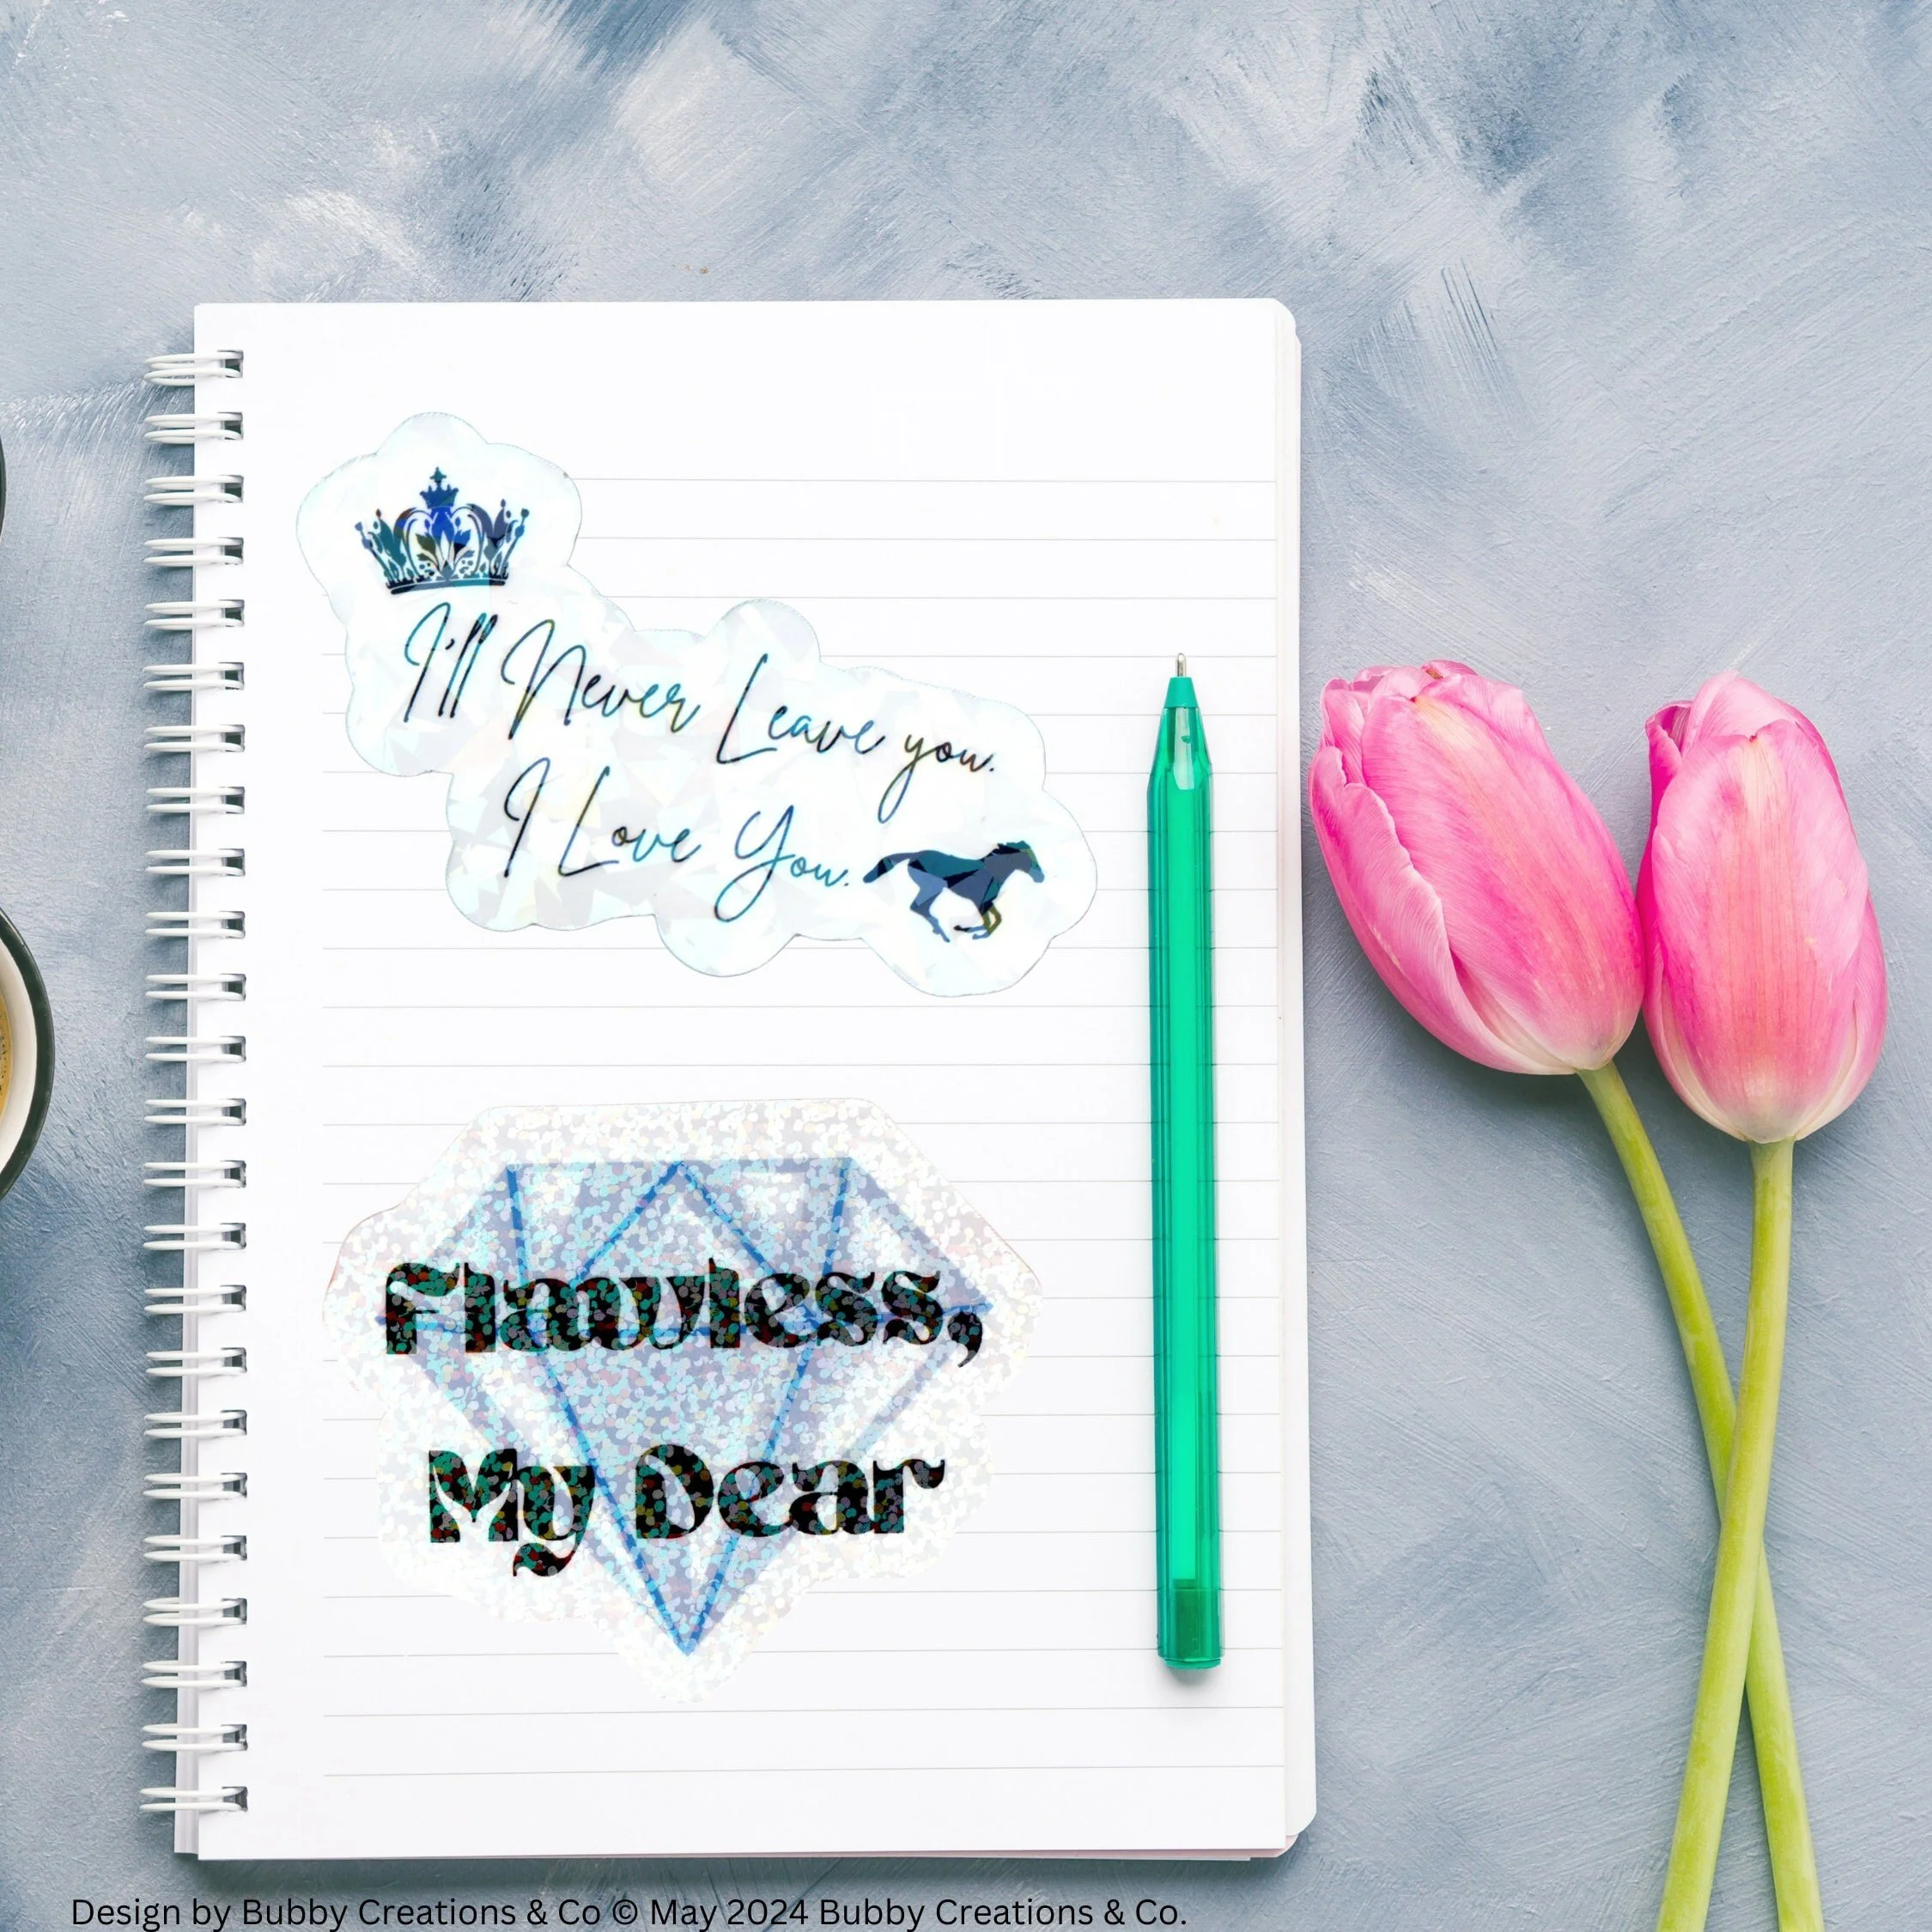 I'll Never Leave you.
I Love You.
Flawless,
My Dear
Design by Bubby Creations & Co © May 2024 Bubby Creations & Co.